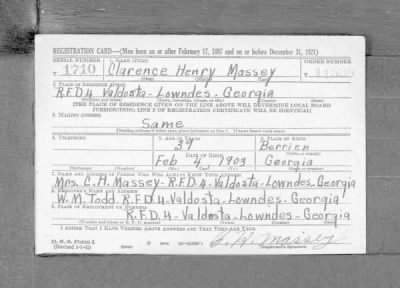 REGISTRATION CARD—(Men born on or after February 17, 1897 and on or before December 31, 1921)
SERIAL NUMBER 1. NAME (Print) ORDER NUMBER
T 1710 Clarence Henry Massey
(First) (Middle) (Last)
2. PLACE OF RESIDENCE (Print)
R.F.D. 4 Valdosta - Lowndes - Georgia
[THE PLACE OF RESIDENCE GIVEN ON THE LINE ABOVE WILL DETERMINE LOCAL BOARD
JURISDICTION; LINE 2 OF REGISTRATION CERTIFICATE WILL BE IDENTICAL]
3. MAILING ADDRESS
Same
[Mailing address if other than place indicated on line 2. If same insert word same]
4. TELEPHONE 5. AGE IN YEARS 6. PLACE OF BIRTH
39 Berrien
DATE OF BIRTH (Town or county)
Feb 4, 1903 Georgia
(Exchange) (Number) (Mo.) (Day) (Yr.) (State or country)
7. NAME AND ADDRESS OF PERSON WHO WILL ALWAYS KNOW YOUR ADDRESS
Mrs. C. H. Massey - R.F.D. 4 - Valdosta - Lowndes. Georgia
8. EMPLOYER'S NAME AND ADDRESS
W. M. Todd. R.F.D 4 - Valdosta - Lowndes - Georgia
9. PLACE OF EMPLOYMENT OR BUSINESS
R.F.D. 4 - Valdosta - Lowndes - Georgia
I AFFIRM THAT I HAVE VERIFIED ABOVE ANSWERS AND THAT THEY ARE TRUE.
D. S. S. Form 1
(Revised 1-1-42) C. H. Massey
(Registrant's signature)